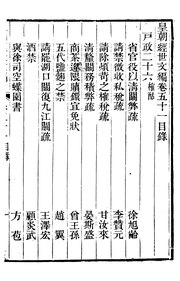 皇朝經世文編卷五十一目錄
戶政二十六榷酤
省官役以清關弊疏 徐旭齡
請禁徵收私稅疏 李贊元
請除煩苛之榷稅疏 甘汝來
清釐關務積弊疏 晏斯盛
商茶難限額鐫宜免狀 曾王孫
五代鹽麴之禁 趙翼
請罷湖口關復九江關疏 王澤宏
酒禁 顧炎武
與徐司空蝶園書 方苞